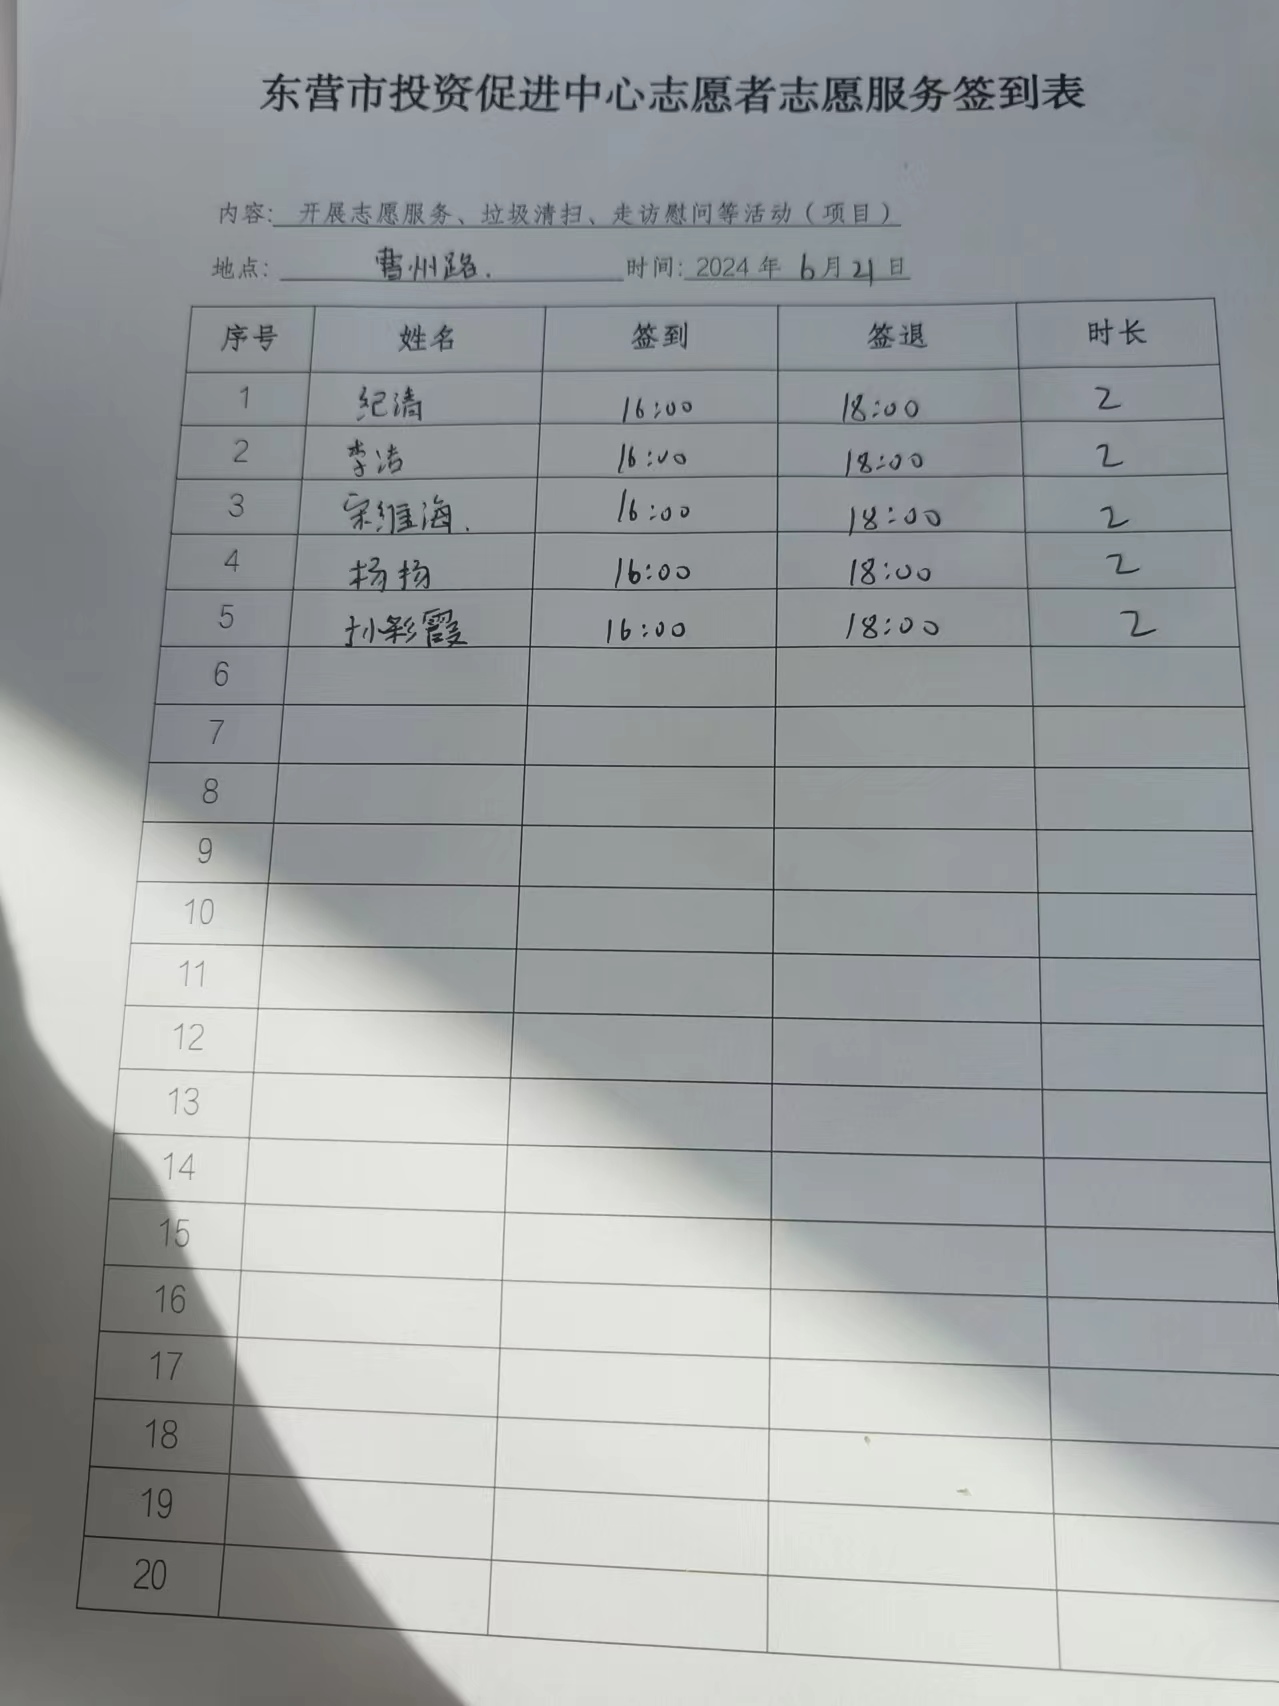 东营市投资促进中心志愿者志愿服务签到表
内容: 开展志愿服务、垃圾清扫、走访慰问等活动（项目）
地点: 曹州路. 时间: 2024 年 6 月 21 日
序号 姓名 签到 签退 时长
1 纪清 16:00 18:00 2
2 李洁 16:00 18:00 2
3 宋维海. 16:00 18:00 2
4 杨扬 16:00 18:00 2
5 孙彩霞 16:00 18:00 2
6
7
8
9
10
11
12
13
14
15
16
17
18
19
20